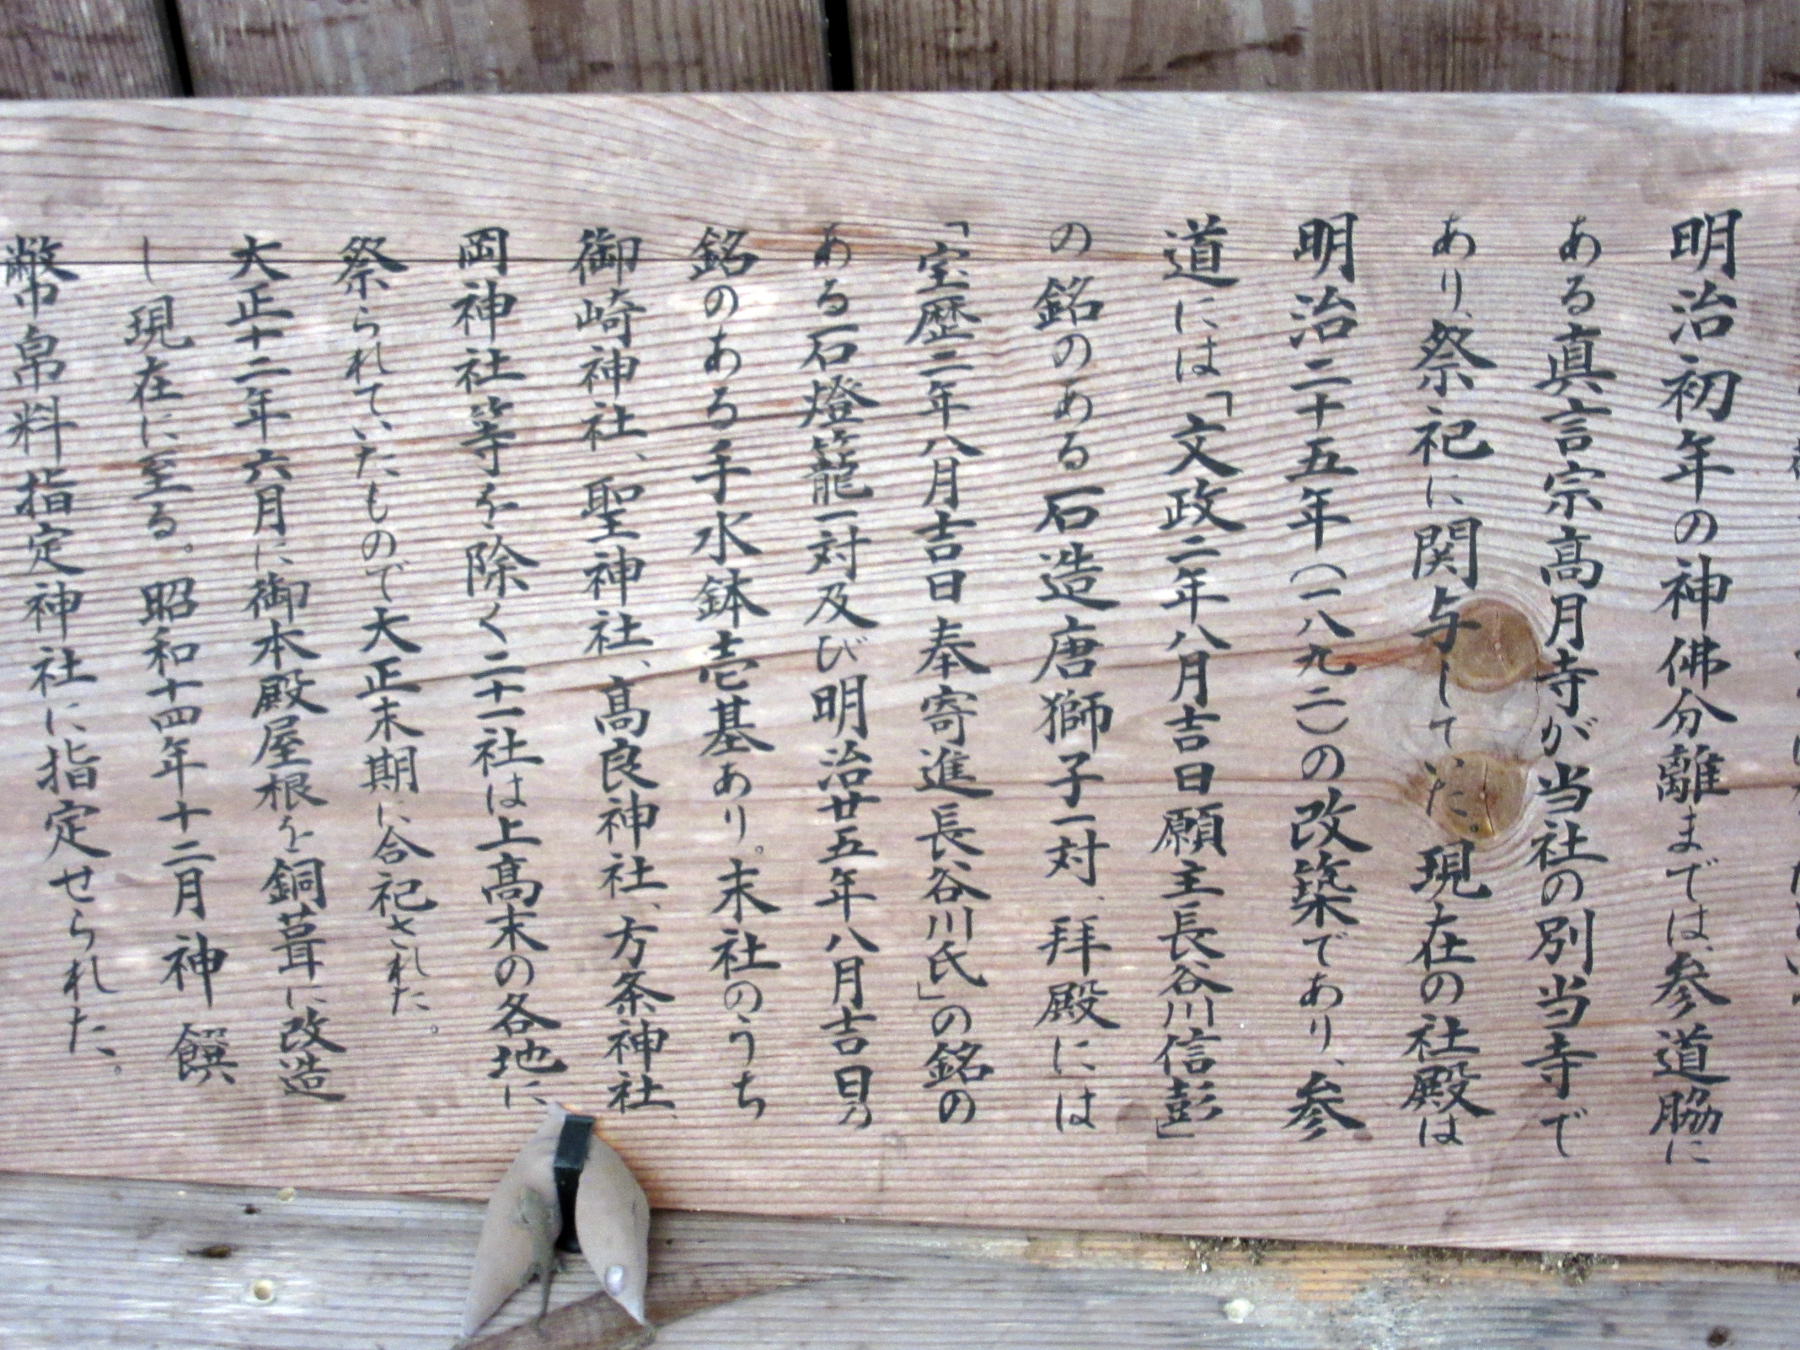 明治初年の神佛分離までは、参道脇に
ある真言宗高月寺が当社の別当寺で
あり、祭祀に関与していた。現在の社殿は
明治二十五年(一八九二)の改築であり、参
道には「文政二年八月吉日願主長谷川信彭」
の銘のある石造唐獅子一対、拝殿には
「宝歴二年八月吉日奉寄進長谷川氏」の銘の
ある石燈籠一対及び明治廿五年八月吉日乃
銘のある手水鉢壱基あり。末社のうち
御崎神社、聖神社、高良神社、方条神社、
岡神社等を除く二十一社は上高末の各地に
祭られていたもので大正末期に合祀された。
大正十二年六月に御本殿屋根を銅葺に改造
し現在に至る。昭和十四年十二月神饌
幣帛料指定神社に指定せられた。